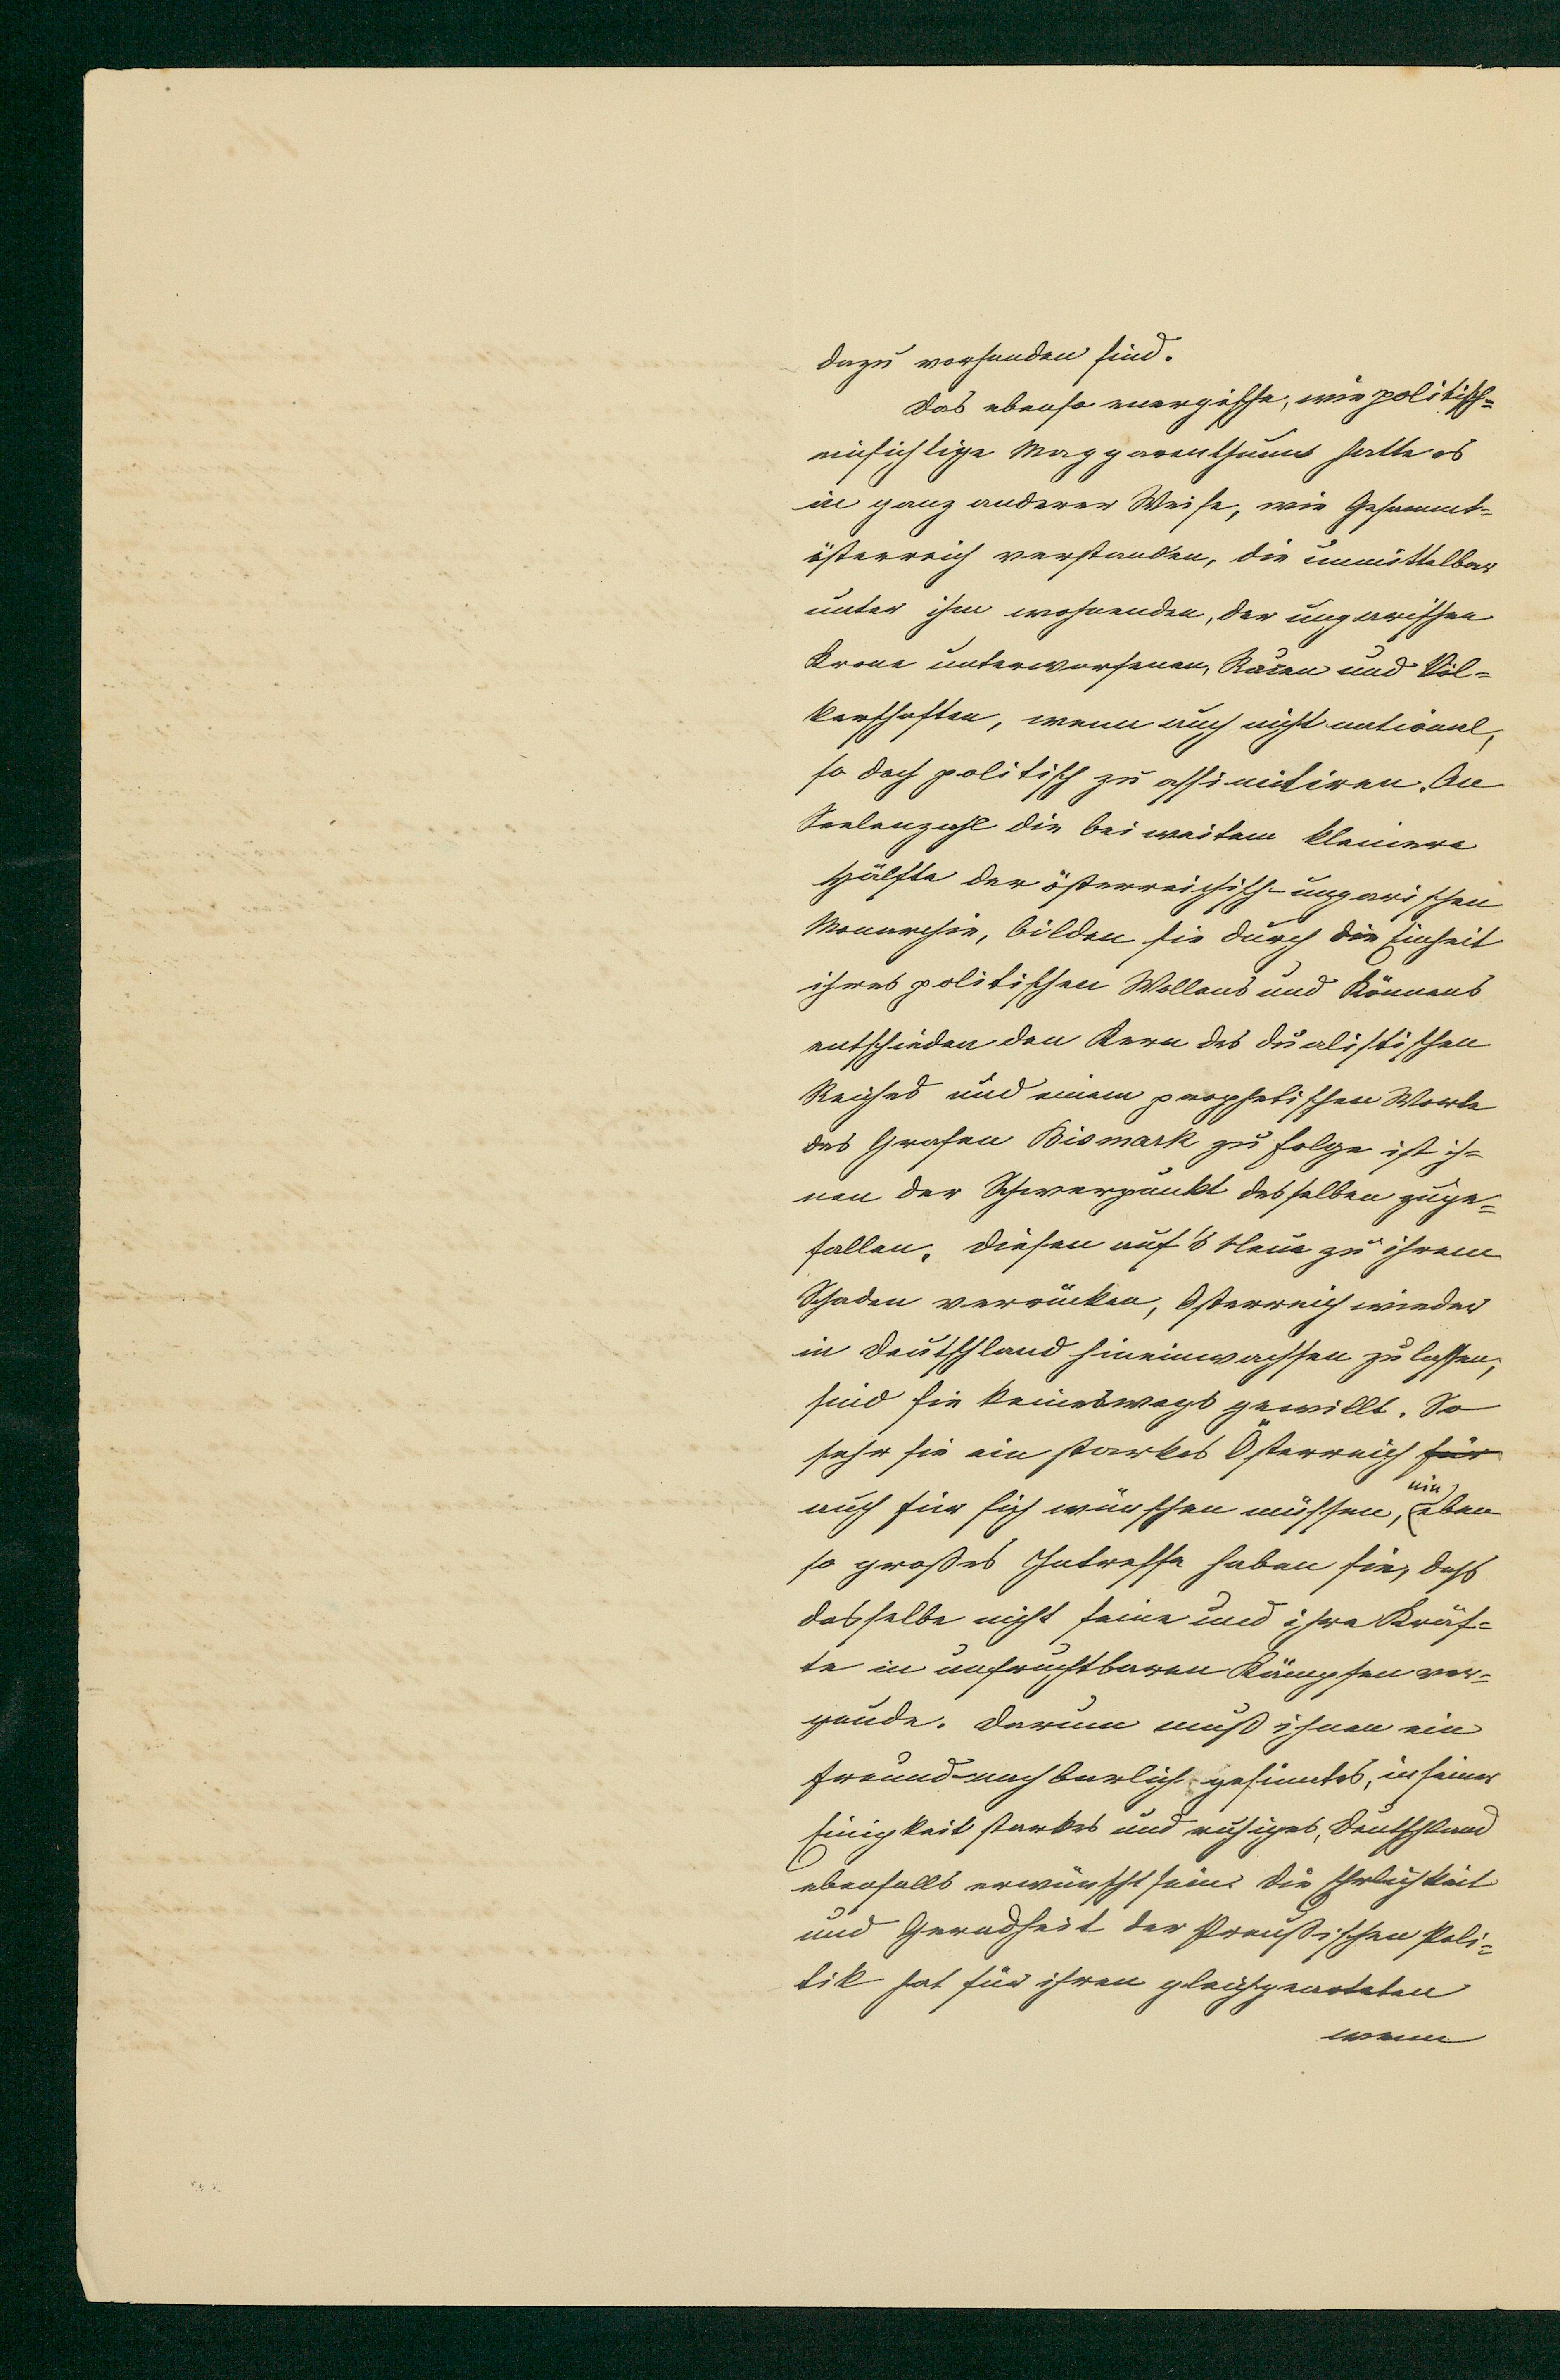 dazu vorhanden sind.
Das ebenso energische, wie politisch=
einsichtige Magyarenthum hatte es
in ganz anderer Weise, wie Gesammt=
österreich verstanden, die unmittelbar
unter ihm wohnenden, der ungarischen
Krone unterworfenen, Racen und Völ=
kerschaften, wenn auch nicht national,
so doch politisch zu assimiliren. An
Seelenzahl die bei weitem kleinere
Hälfte der österreichisch-ungarischen
Monarchie, bilden sie durch die Einheit
ihres politischen Wollens und Könnens
entschieden den Kern des dualistischen
Reiches und einem prophetischen Worte
des Grafen Bismark zu folge ist ih=
nen der Schwerpunkt desselben zuge=
fallen. Diesen auf's Neue zu ihrem
Schaden verrücken, Österreich wieder
in Deutschland hineinwachsen zu lassen,
sind sie keineswegs gewillt. So
sehr sie ein starkes Österreich für
auch für sich wünschen müssen, ein eben
so großes Intresse haben sie, dass
dasselbe nicht seine und ihre Kräf=
te in unfruchtbaren Kämpfen ver=
geude. Darum muß ihnen ein
freund-nachbarlich gesinntes, in seiner
Einigkeit starkes und ruhiges, Deutschland
ebenfalls erwünscht sein. Die Ehrlichkeit
und Geradheit der Preußischen Poli=
tik hat für ihren gleichgearteten
wenn